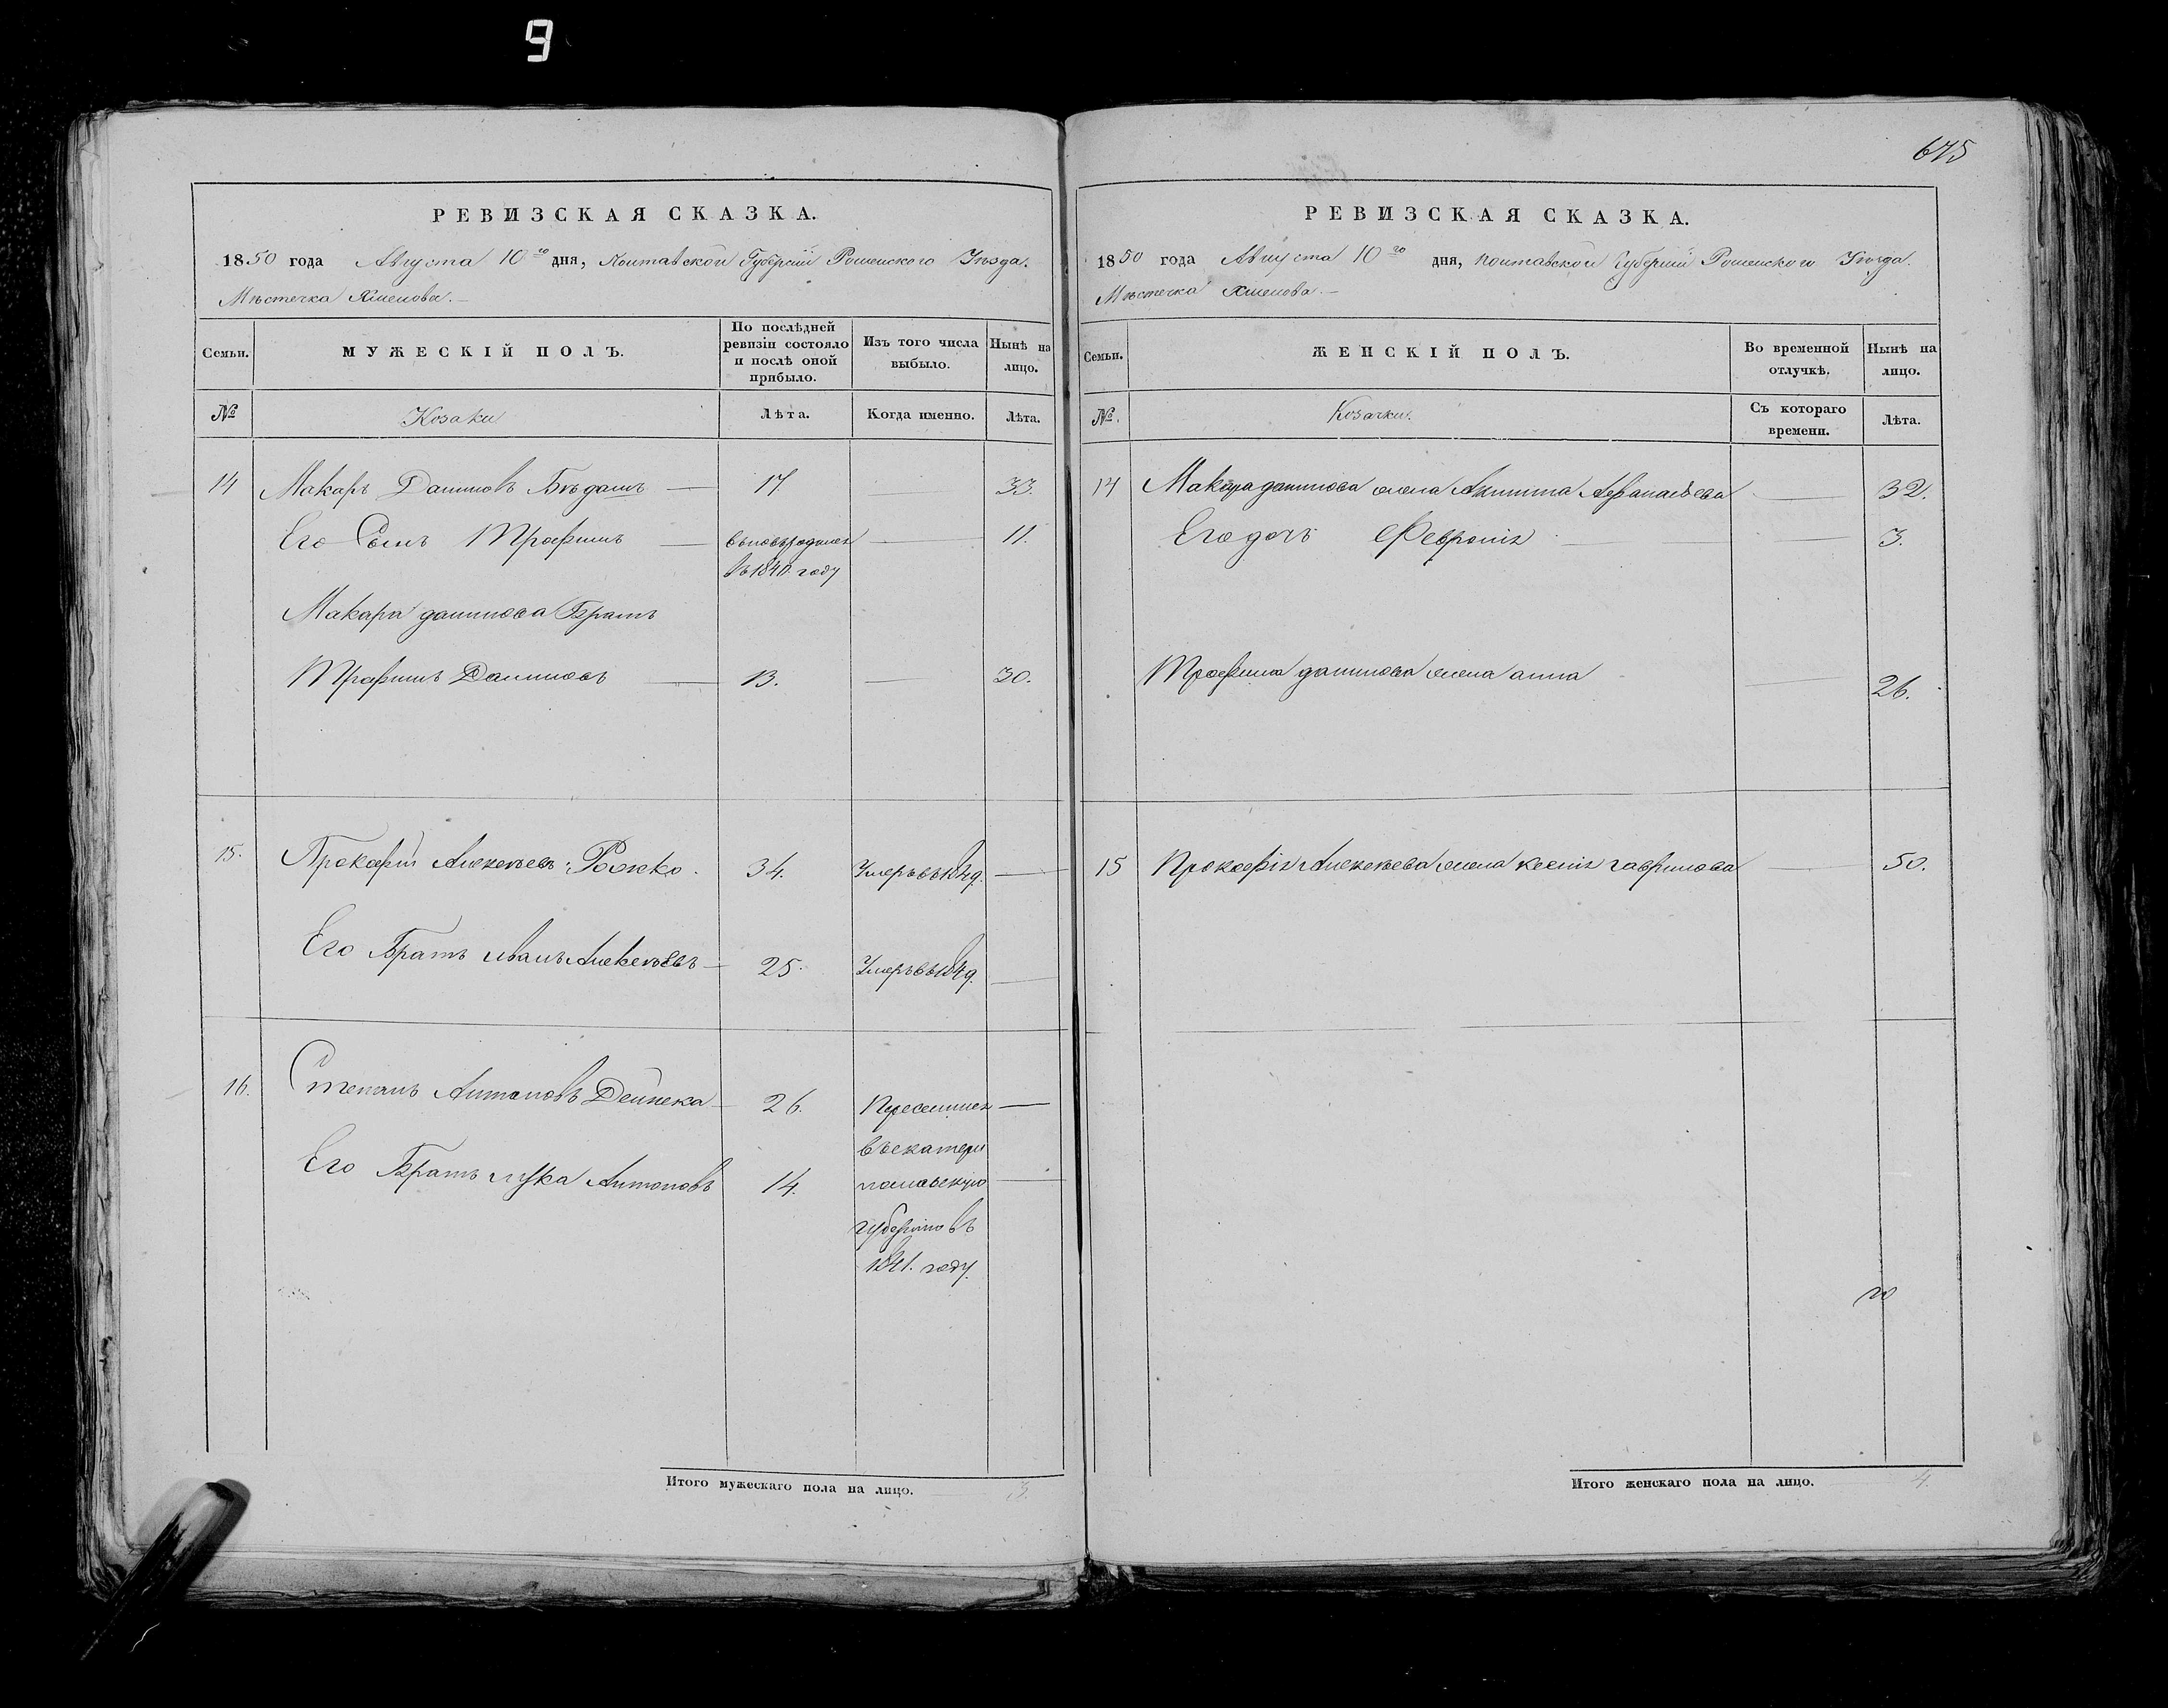 9
675
РЕВИЗСКАЯ СКАЗКА.
1850 года Августа 10го дня, Полтавской Губерніи Роменского Уѣзда.
Мѣстечка Хмелова.
Семьи. МУЖЕСКІЙ ПОЛЪ. По послѣдней ревизіи состояло и послѣ оной прибыло. Изъ того числа выбыло. Нынѣ на лицо.
№ Козаки Лѣта. Когда именно. Лѣта.
14 Макаръ Даниловъ — 17. — 33.
Его Сынъ Трофимъ — вновьрожден — 11.
въ 1840 году
Макара данилова Братъ
Трофимъ Даниловъ — 13. — 30.
15. Прокофій Алексѣевъ Рожко. 34. Умеръ въ 1849. —
Его Братъ иванъ Алексѣевъ — 25. Умеръ въ 1849. —
16. Степанъ Антоновъ Дейнека — 26. Переселилен —
въ екатери
Его Братъ лука Антоновъ 14. нославскую —
губернію въ
1841. году.
Итого мужескаго пола на лицо. 3.
РЕВИЗСКАЯ СКАЗКА.
1850 года Августа 10го дня, полтавской Губерніи Роменского Уѣзда.
Мѣстечка Хмелова.
Семьи. ЖЕНСКІЙ ПОЛЪ. Во временной отлучкѣ. Нынѣ на лицо.
№. Козачки. Съ котораго времени. Лѣта.
14 Макара данилова жена Афанасьева — 32.
Его дочь Февронія — 3.
Трофима данилова жена анна — 26.
15 Прокофія Алексѣева жена ксенія гаврилова — 50.
Итого женскаго пола на лицо. 4.